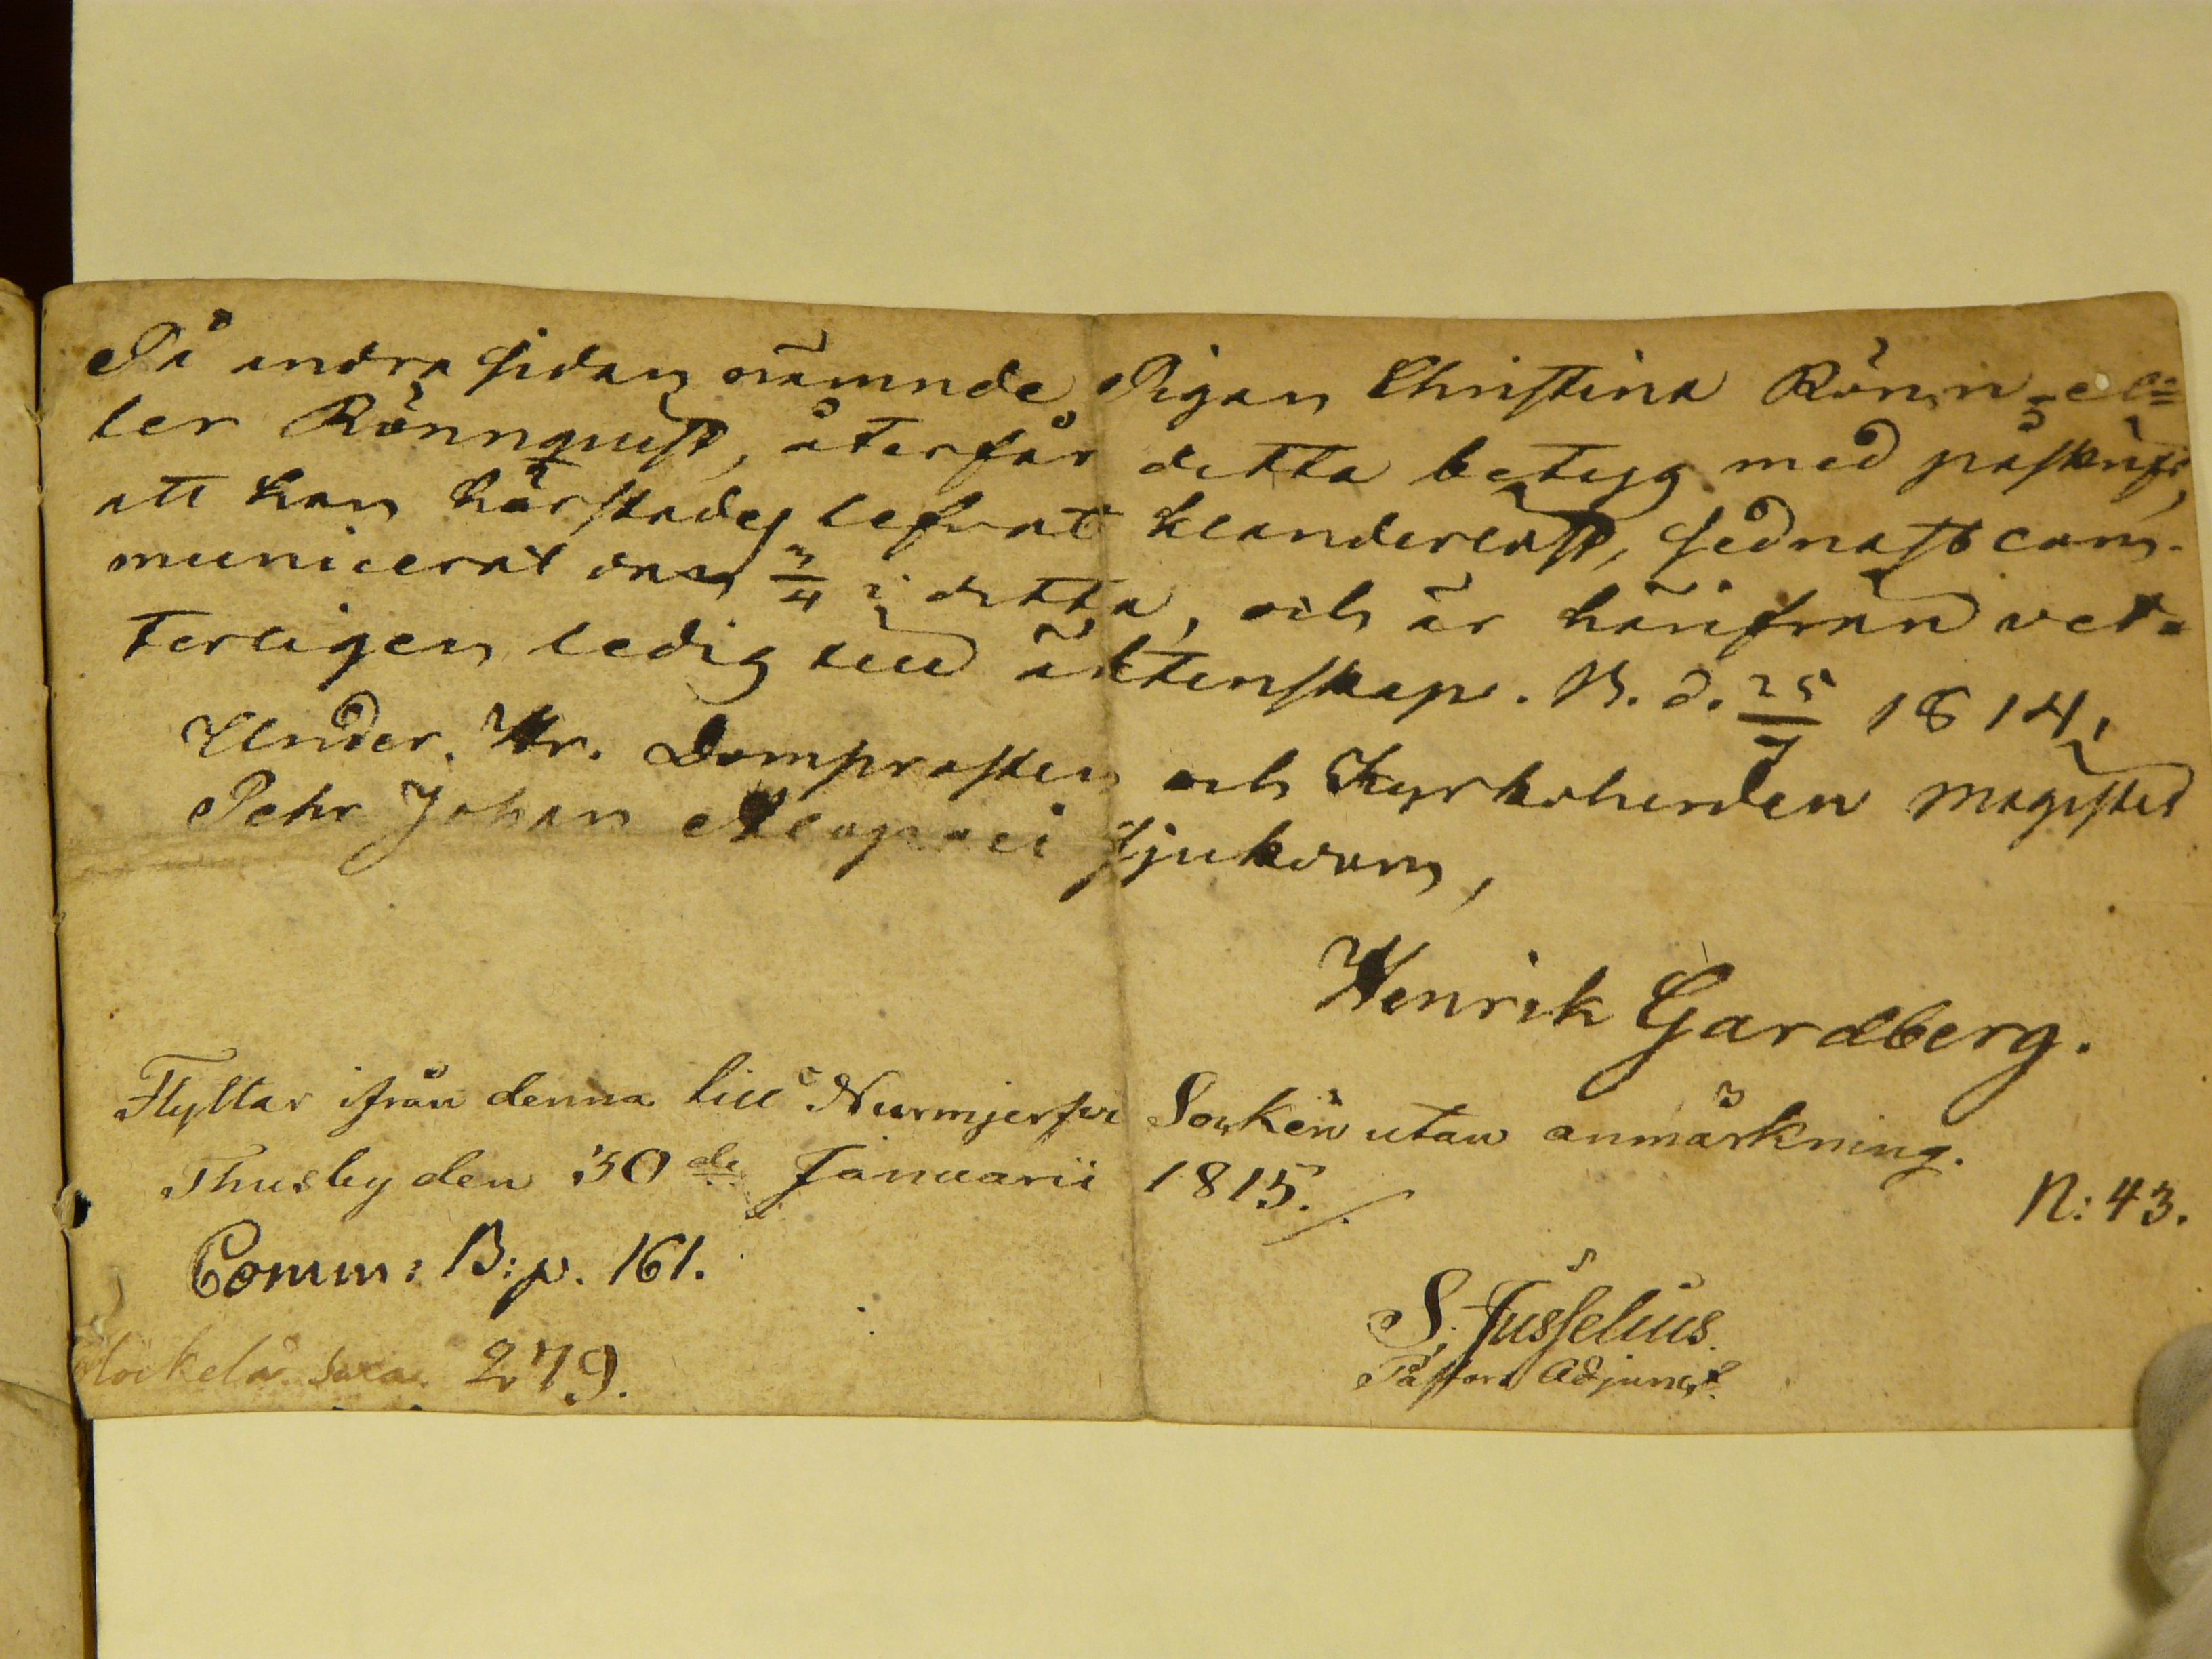 På andra sidan nämnde Pigan Christina Rönn, el=
ler Rönnquist, återfår detta betyg med påskrift,
att hon härstädes lefvat klanderlöst, sednast com-
municerat den 3/4 i detta, och är härifrån vet-
terligen ledig till äktenskap. B. d. 25/7 1814,
Under Hr. Domprosten och Kyrkoherden Magister
Pehr Johan Alopaei sjukdom,
Henrik Gardberg.
Flyttar ifrån denna till Nurmjerfvi Socken utan anmärkning.
Thusby den 30de Januarii 1815./.
N: 43.
Comm: B: p. 161.
S. Jusselius.
Pastors Adjunct.
279.